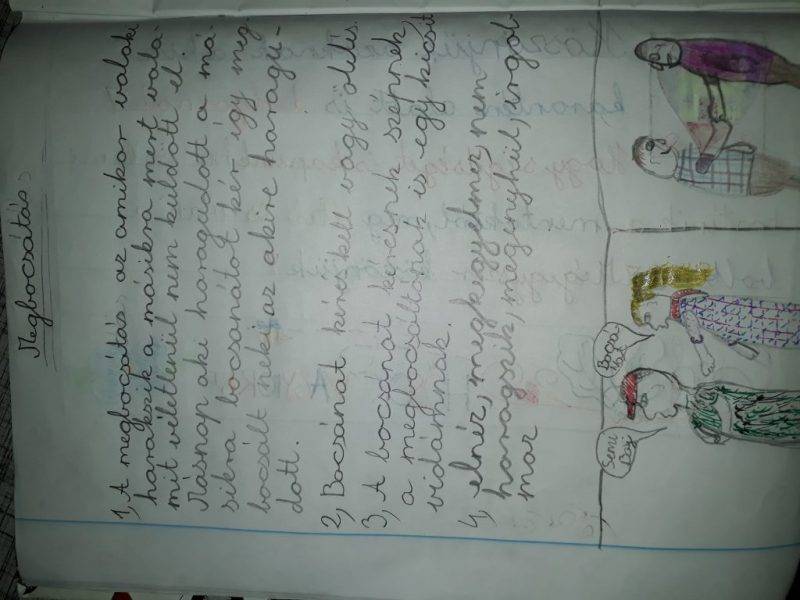 Megbocsátás
1, A megbocsátás az amikor valaki
harakszik a másikra mert vala-
mit véletlenül nem küldött el.
Másnap aki haragudott a má-
sikra bocsánatot kér így meg
bocsált neki az akire haragu-
dott.
2, Bocsánat kérés kell vagy ölelés.
3, A bocsánat kérésnek szépnek,
a megbocsáltónak is egy kicsit
vidámnak.
4, elnéz, megkegyelmez, nem
haragszik, megenyhül, irgal
maz
Bocsi
Semi
Baj